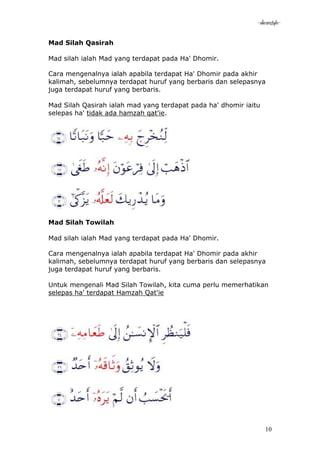 -akwamzlysfe-
Mad Silah Qasirah
Mad silah ialah Mad yang terdapat pada Ha' Dhomir.
Cara mengenalnya ialah apabila terdapat Ha' Dhomir pada akhir
kalimah, sebelumnya terdapat huruf yang berbaris dan selepasnya
juga terdapat huruf yang berbaris.
Mad Silah Qasirah ialah mad yang terdapat pada ha' dhomir iaitu
selepas ha' tidak ada hamzah qat'ie.
لِّنُخْرِجَ بِهِۦ حَبًّا وَنَبَاتًا ﴿١٥﴾
ٱذْهَبْ إِلَىٰ فِرْعَوْنَ إِنَّهُۥ طَغَىٰ ﴿١٧﴾
وَمَا يُدْرِيكَ لَعَلَّهُۥ يَزَّكَّىٰٓ ﴿٣﴾
Mad Silah Towilah
Mad silah ialah Mad yang terdapat pada Ha' Dhomir.
Cara mengenalnya ialah apabila terdapat Ha' Dhomir pada akhir
kalimah, sebelumnya terdapat huruf yang berbaris dan selepasnya
juga terdapat huruf yang berbaris.
Untuk mengenali Mad Silah Towilah, kita cuma perlu memerhatikan
selepas ha' terdapat Hamzah Qat'ie
فَلْيَنظُرِ ٱلْإِنسَٰنُ إِلَىٰ طَعَامِهِۦٓ ﴿٢٤﴾
وَلَا يُوثِقُ وَثَاقَهُۥٓ أَحَدٌ ﴿٢٦﴾
أَيَحْسَبُ أَن لَّمْ يَرَهُۥٓ أَحَدٌ ﴿٧﴾
10